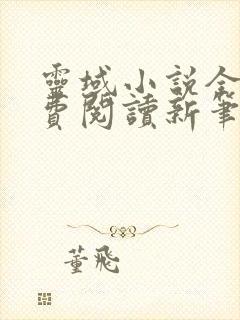 靈域小說全
費閱讀新筆
董飛